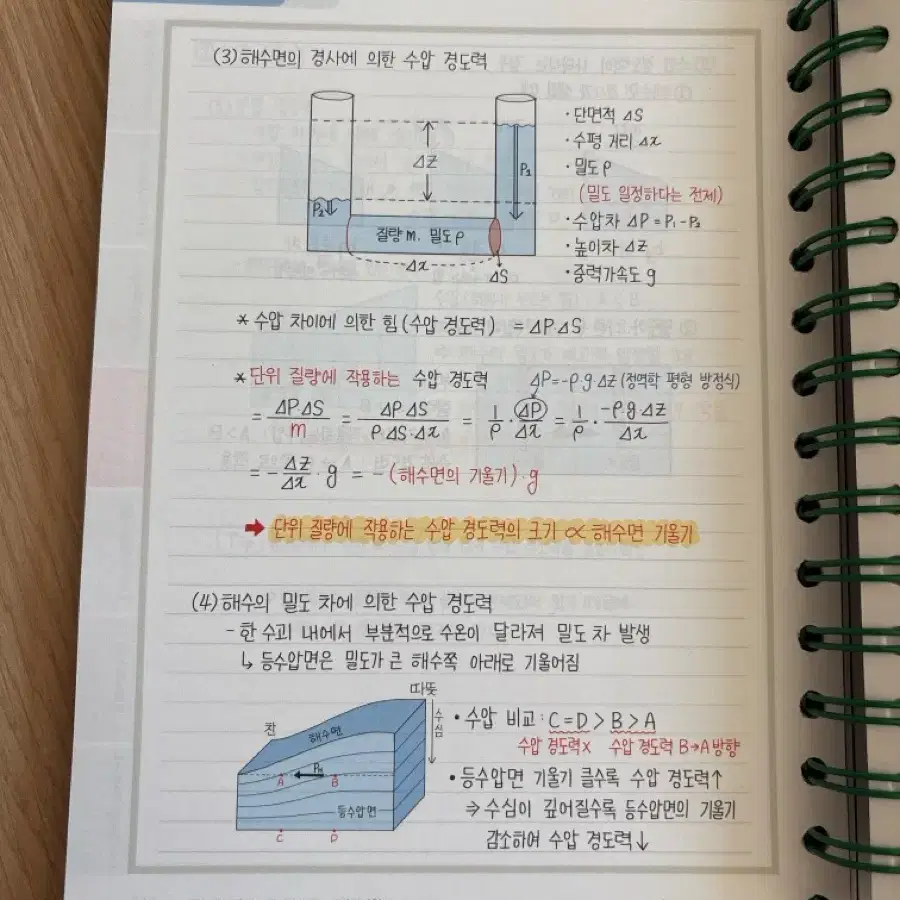 (3) 해수면의 경사에 의한 수압 경도력
· 단면적 ΔS
· 수평 거리 Δx
· 밀도 ρ
(밀도 일정하다는 전제)
· 수압차 ΔP = P₁ - P₂
· 높이차 ΔZ
· 중력가속도 g
ΔZ
P₁
P₂
질량 m. 밀도 ρ
Δx
ΔS
* 수압 차이에 의한 힘 (수압 경도력) = ΔP ΔS
* 단위 질량에 작용하는 수압 경도력 ΔP = -ρ g ΔZ (정역학 평형 방정식)
= ΔP ΔS / m = ΔP ΔS / ρ ΔS · Δx = 1/ρ · ΔP/Δx = 1/ρ · -ρ·g·ΔZ / Δx
= - ΔZ/Δx · g = - (해수면의 기울기) · g
➡ 단위 질량에 작용하는 수압 경도력의 크기 ∝ 해수면 기울기
(4) 해수의 밀도 차에 의한 수압 경도력
- 한 수괴 내에서 부분적으로 수온이 달라져 밀도 차 발생
↳ 등수압면은 밀도가 큰 해수쪽 아래로 기울어짐
따뜻
찬
해수면
수심
A
B
등수압면
C
D
· 수압 비교 : C = D > B > A
수압 경도력 X 수압 경도력 B→A 방향
· 등수압면 기울기 클수록 수압 경도력↑
⇒ 수심이 깊어질수록 등수압면의 기울기
감소하여 수압 경도력↓